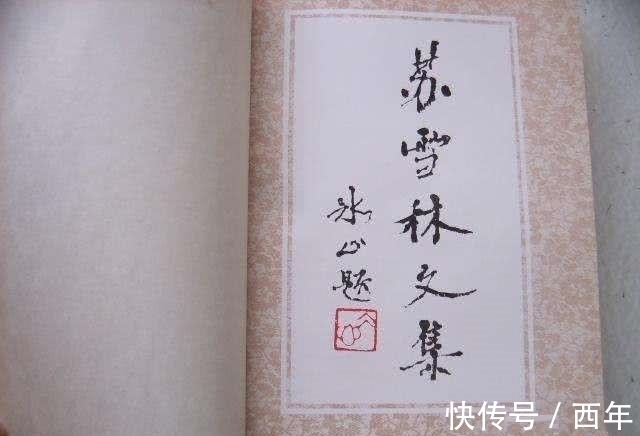 苏雪林文集
冰心题
快传号 / 西年